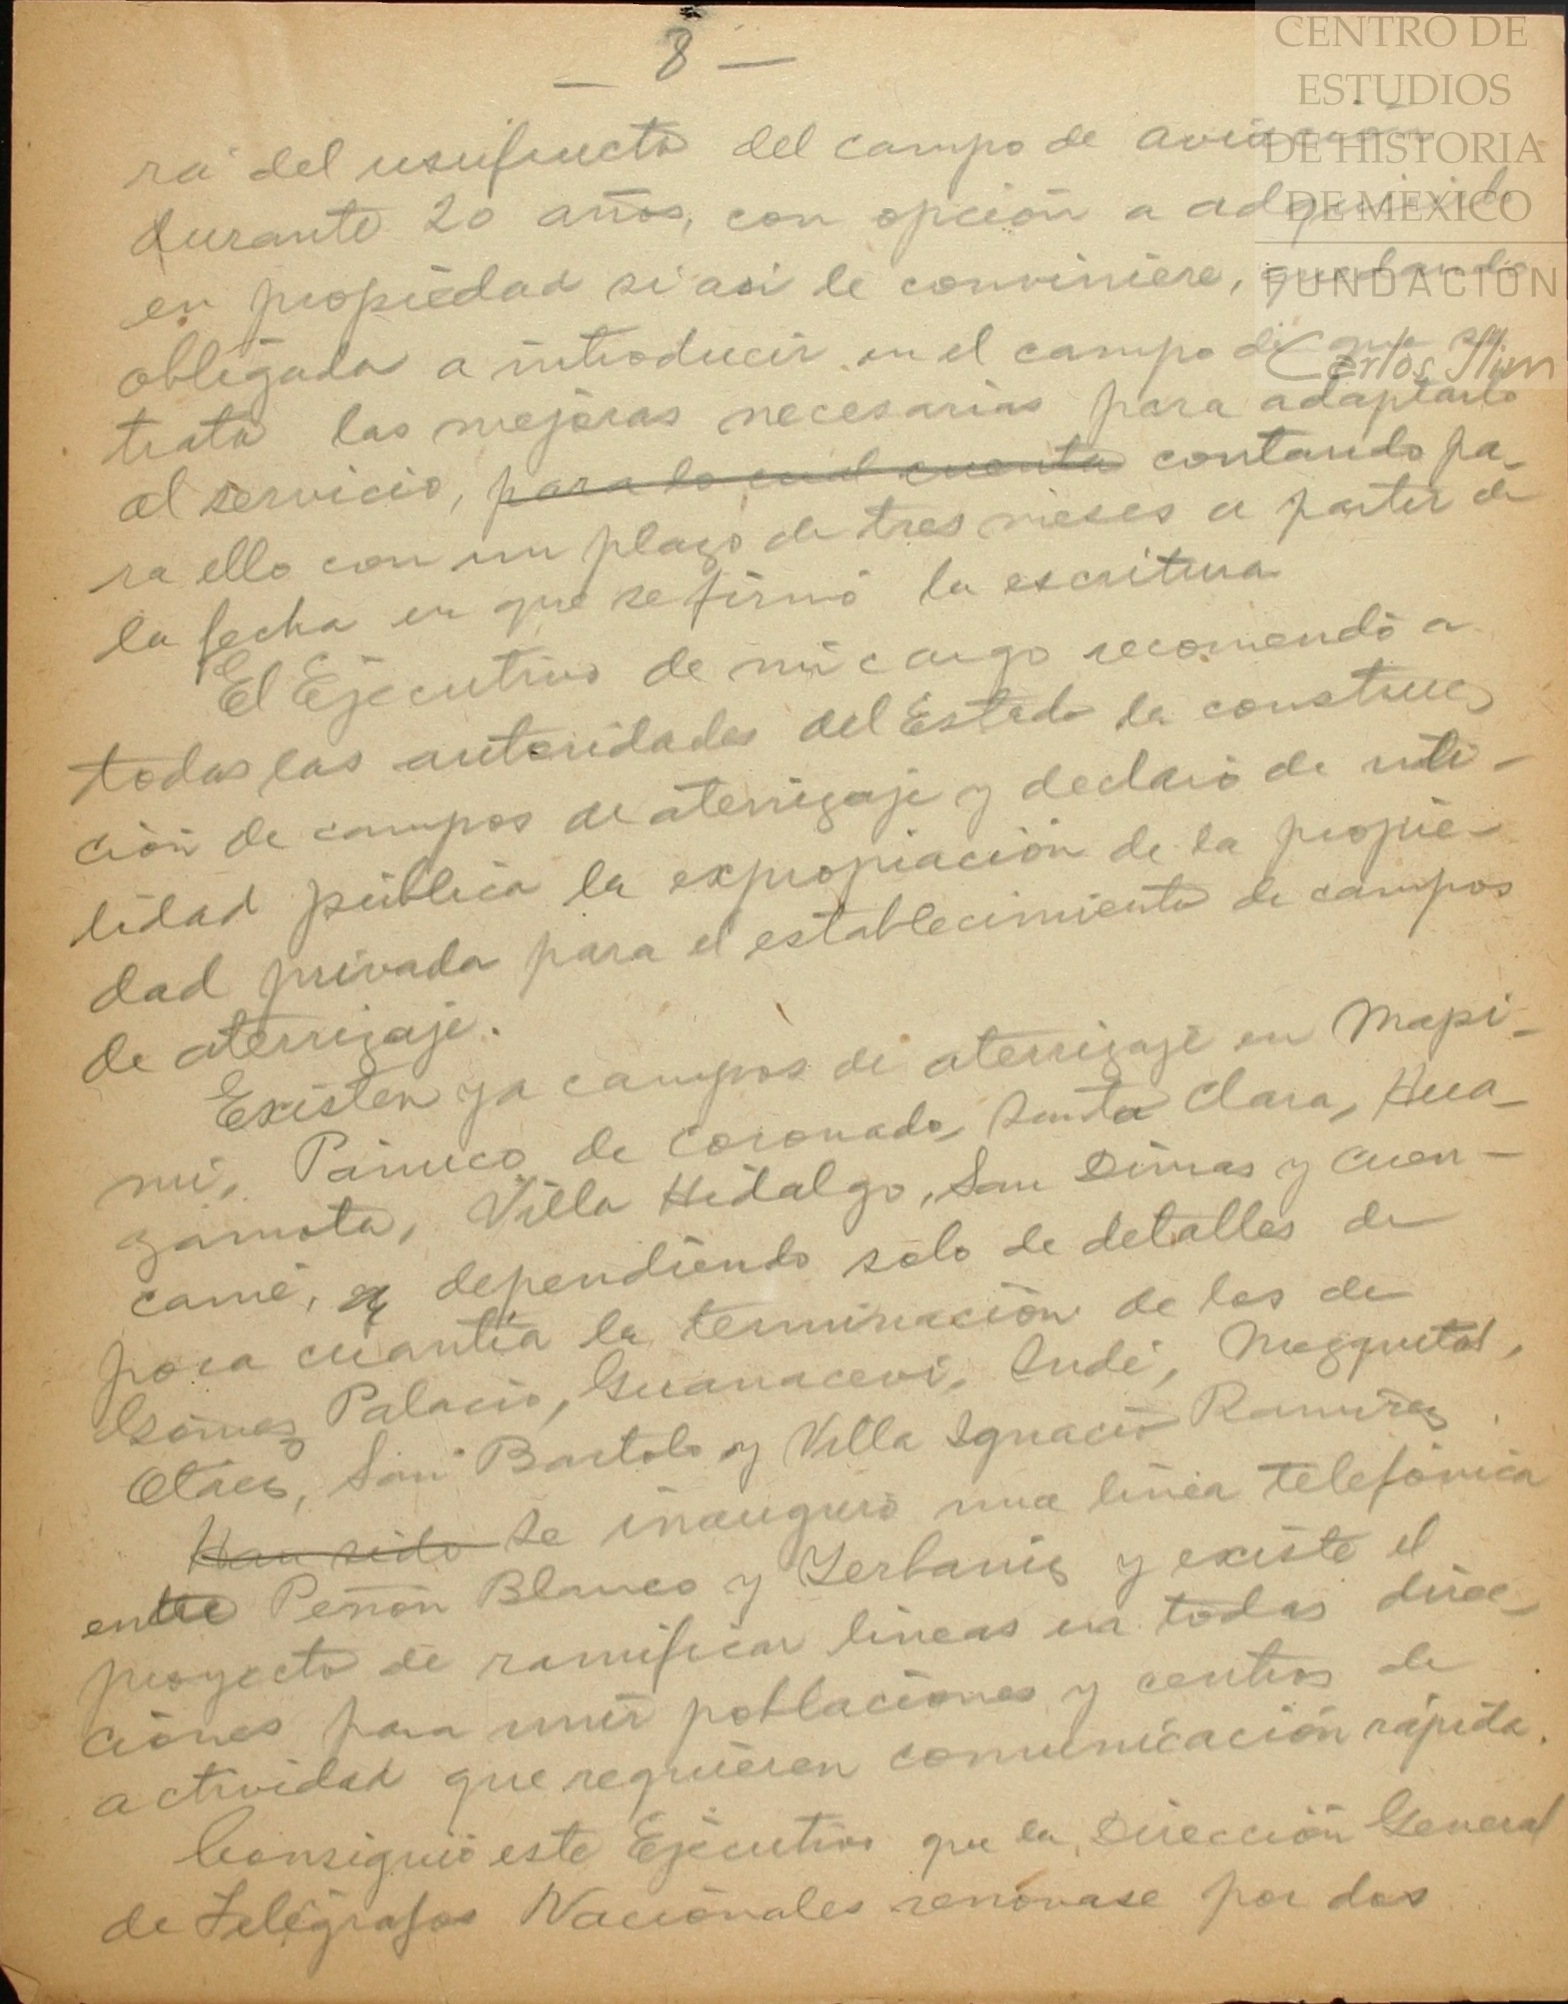 CENTRO DE
ESTUDIOS
DE HISTORIA
DE MEXICO
FUNDACIÓN
Carlos Slim
— 8 —
rá del usufructo del campo de aviación
durante 20 años, con opción a adquirirlo
en propiedad si asi le conviniere, quedando
obligada a introducir en el campo de que se
trata las mejoras necesarias para adaptarlo
al servicio, para lo cual cuenta contando pa-
ra ello con un plazo de tres meses a partir de
la fecha en que se firmó la escritura
El Ejecutivo de mi cargo recomendó a
todas las autoridades del Estado la construc-
ción de campos de aterrizaje y declaró de uti-
lidad pública la expropiación de la propie-
dad privada para el establecimiento de campos
de aterrizaje.
Existen ya campos de aterrizaje en Mapi-
mi, Pánuco de Coronado, Santa Clara, Hua-
zamota, Villa Hidalgo, San Dimas y Cuen-
camé, dependiendo sólo de detalles de
poca cuantía la terminación de los de
Gómez Palacio, Guanaceví, Indé, Mezquital,
Otáez, San Bartolo y Villa Ignacio Ramírez.
Han sido Se inauguró una línea telefónica
entre Peñón Blanco y Yerbaniz y existe el
proyecto de ramificar lineas en todas direc-
ciones para unir poblaciones y centros de
actividad que requieren comunicación rápida.
Consiguió este Ejecutivo que la Dirección General
de Telégrafos Nacionales renovase por dos